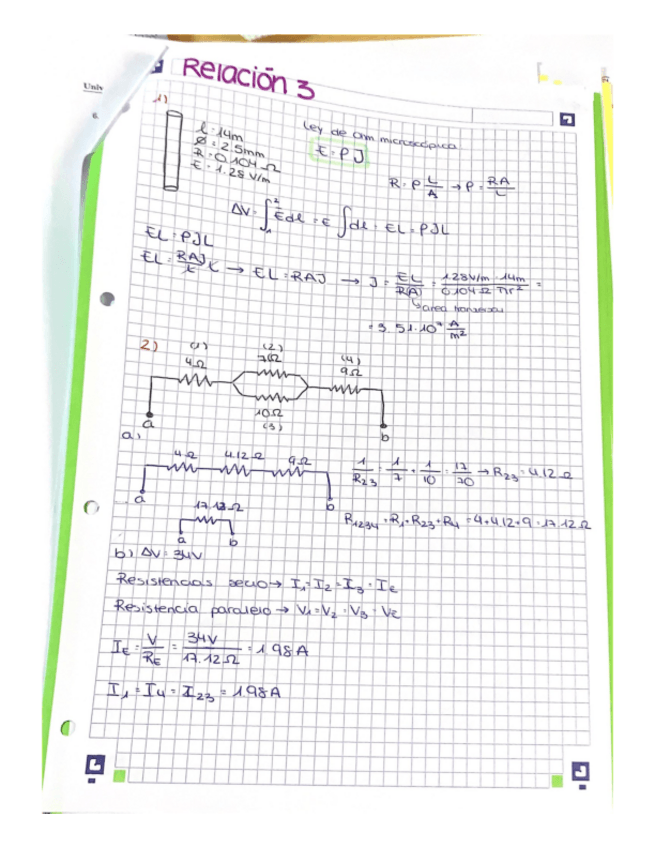 Univ
6.
Relación 3
1)
l = 14m
Ø = 2.5mm
R = 0,104 Ω
E = 1.28 V/m
Ley de Ohm microscópica
E = ρJ
R = ρ L/A → ρ = RA/L
ΔV = ∫₁² E dl = E ∫dl = EL = ρJL
EL = ρJL
EL = RAJ/L L → EL = RAJ → J = EL/R(A) = 1.28V/m · 14m / 0.104Ω πr² =
↳ área transversal
= 3.51·10⁷ A/m²
2)
(1) (2) (4)
4Ω 7Ω 9Ω
10Ω
(3)
a b
a)
4Ω 4.12Ω 9Ω
a b
1/R23 = 1/7 + 1/10 = 17/70 → R23 = 4.12Ω
17.12Ω
a b
R1234 = R1 + R23 + R4 = 4 + 4.12 + 9 = 17.12Ω
b) ΔV = 34V
Resistencias serie → I1 = I2 = I3 = IE
Resistencia paralelo → V1 = V2 = V3 = VE
IE = V/RE = 34V/17.12Ω = 1.98A
I1 = I4 = I23 = 1.98A